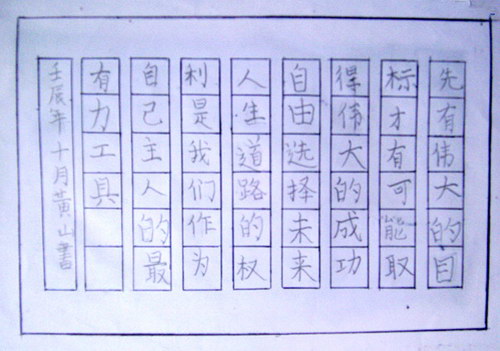 先有伟大的目
标才有可能取
得伟大的成功
自由选择未来
人生道路的权
利是我们作为
自己主人的最
有力工具
壬辰年十月黄山書